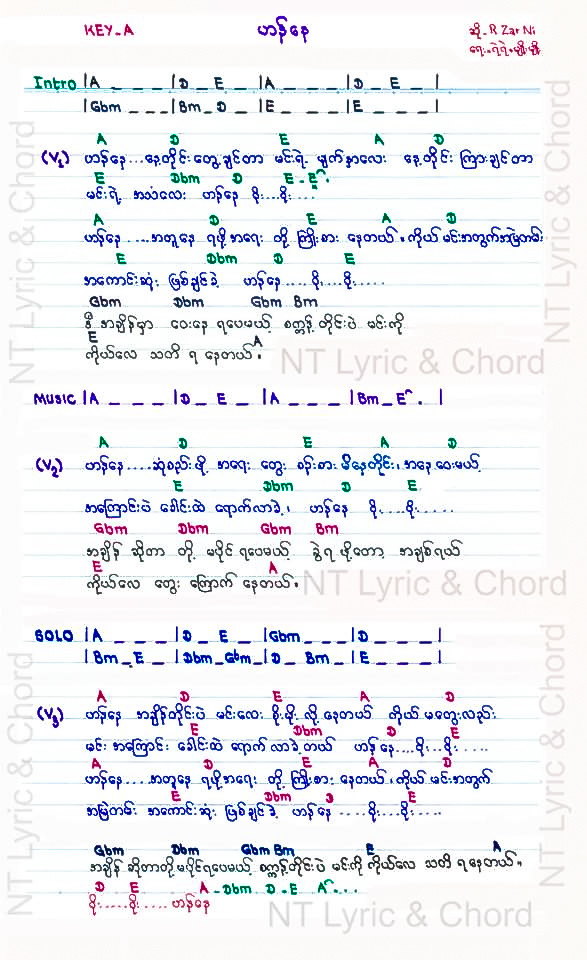 KEY_A ဟန်နေ ဆို - R Zar Ni
ရေး - ရဲရဲ + မျိုးမျိုး
Intro |A _ _ _ |D _ E _ |A _ _ _ |D _ E _ |
|Gbm _ _ _ |Bm _ D _ |E _ _ _ |E _ _ _ |
A D E A D
(V₁) ဟန်နေ ... နေ့တိုင်း တွေ့ချင်တာ မင်းရဲ့ မျက်နှာလေး နေ့တိုင်း ကြားချင်တာ
E Dbm D E - E
မင်းရဲ့ အသံလေး ဟန်နေ စိုး...စိုး....
A D E A D
ဟန်နေ ....အတူနေ ရဖို့ အရေး တို့ ကြိုးစား နေတယ် ၊ ကိုယ် မင်းအတွက်အမြဲတမ်း
E Dbm D E
အကောင်းဆုံး ဖြစ်ချင်ခဲ့ ဟန်နေ ....စိုး...စိုး.....
Gbm Dbm Gbm Bm
ဒီ အချိန်မှာ ဝေးနေ ရပေမယ့် စက္ကန့် တိုင်းပဲ မင်းကို
E A
ကိုယ်လေ သတိ ရ နေတယ် ။
NT Lyric & Chord
MUSIC |A _ _ _ |D _ E _ |A _ _ _ |Bm _ E . |
A D E A D
(V₂) ဟန်နေ ....ဆုံစည်းဖို့ အရေး တွေး စဉ်းစား မိနေတိုင်း ၊ အနေ ဝေးမယ့်
E Dbm D E
အကြောင်းပဲ ခေါင်းထဲ ရောက်လာခဲ့ ၊ ဟန်နေ စိုး....စိုး.....
Gbm Dbm Gbm Bm
အချိန် ဆိုတာ တို့ မပိုင် ရပေမယ့် ခွဲရ ဖို့တော့ အချစ်ရယ်
E A
ကိုယ်လေ တွေး ကြောက် နေတယ် ။
NT Lyric & Chord
SOLO |A _ _ _ |D _ E _ |Gbm _ _ _ |D _ _ _ |
|Bm _ E _ |Dbm _ Gbm _ |D _ Bm _ |E _ _ _ |
A D E A D
(V₃) ဟန်နေ အချိန်တိုင်းပဲ မင်းလေး စိုးမိုး လို့ နေတယ် ကိုယ် မတွေးလည်း
E Dbm D E
မင်း အကြောင်း ခေါင်းထဲ ရောက်လာခဲ့တယ် ဟန်နေ....စိုး...စိုး.....
A D E A D
ဟန်နေ....အတူနေ ရဖို့အရေး တို့ ကြိုးစား နေတယ် ၊ ကိုယ် မင်းအတွက်
E Dbm D E
အမြဲတမ်း အကောင်းဆုံး ဖြစ်ချင်ခဲ့ ဟန်နေ ....စိုး....စိုး.....
Gbm Dbm Gbm Bm E A
အချိန် ဆိုတာတို့ မပိုင်ရပေမယ့် စက္ကန့်တိုင်းပဲ မင်းကို ကိုယ်လေ သတိ ရနေတယ် ။
D E A - Dbm D - E A...
စိုး.....စိုး..... ဟန်နေ
NT Lyric & Chord
NT Lyric & Chord
NT Lyric & Chord
NT Lyric & Chord
NT Lyric & Chord
NT Lyric & Chord
NT Lyric & Chord